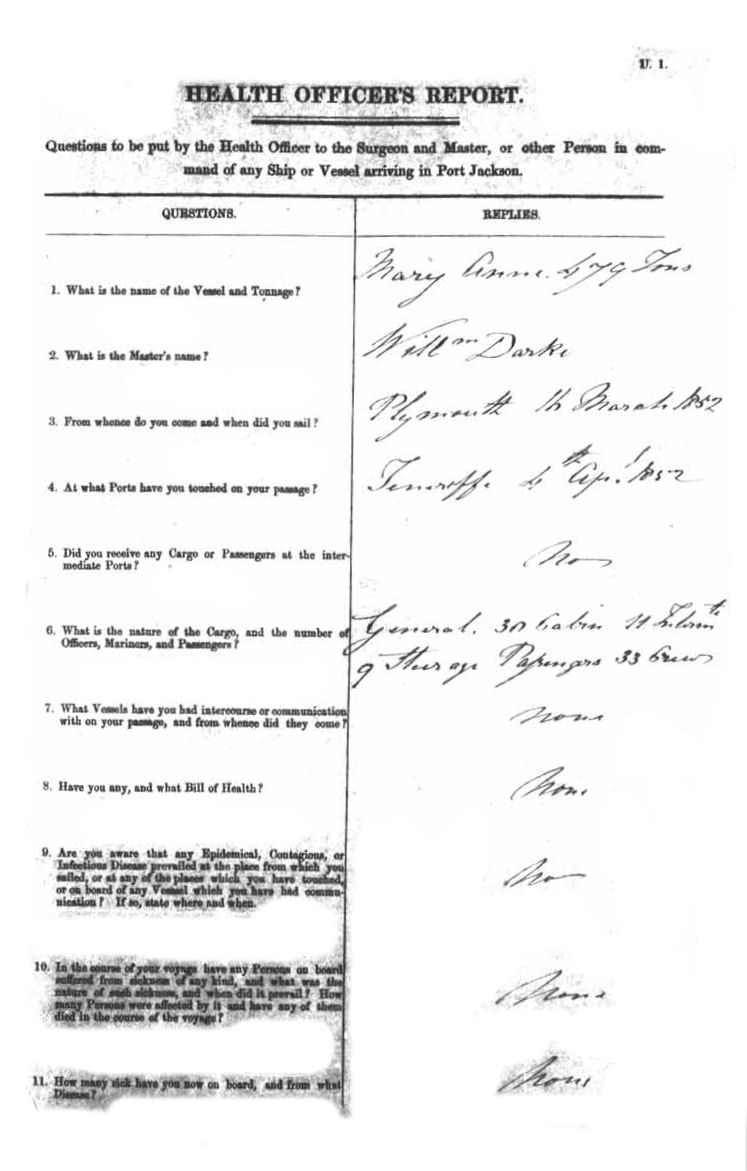 U. 1.
HEALTH OFFICER'S REPORT.
Questions to be put by the Health Officer to the Surgeon and Master, or other Person in com-
mand of any Ship or Vessel arriving in Port Jackson.
QUESTIONS. REPLIES.
1. What is the name of the Vessel and Tonnage? Mary Anne. 479 Tons
2. What is the Master's name? Willm Darke
3. From whence do you come and when did you sail? Plymouth March 1852
4. At what Ports have you touched on your passage? Teneriffe 4th Apl 1852
5. Did you receive any Cargo or Passengers at the inter-
mediate Ports? No
6. What is the nature of the Cargo, and the number of General. Cabin
Officers, Mariners, and Passengers? 9 Steerage Passengers 33 Crew
7. What Vessels have you had intercourse or communication
with on your passage, and from whence did they come? None
8. Have you any, and what Bill of Health? None
9. Are you aware that any Epidemical, Contagious, or
Infectious Disease prevailed at the place from which you
sailed, or at any of the places which you have touched,
or on board of any Vessel which you have had commu-
nication? If so, state where and when. No
10. In the course of your voyage have any Persons on board
suffered from sickness of any kind, and what was the
nature of such sickness, and when did it prevail? How
many Persons were affected by it and have any of them
died in the course of the voyage? None
11. How many sick have you now on board, and from what
Disease? None